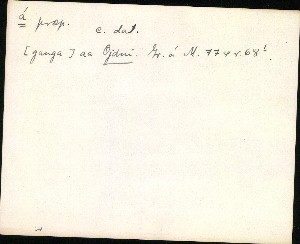 á præp.
c. dat.
[ganga] aa Öjdni. Gr. á M. 77 v. 68